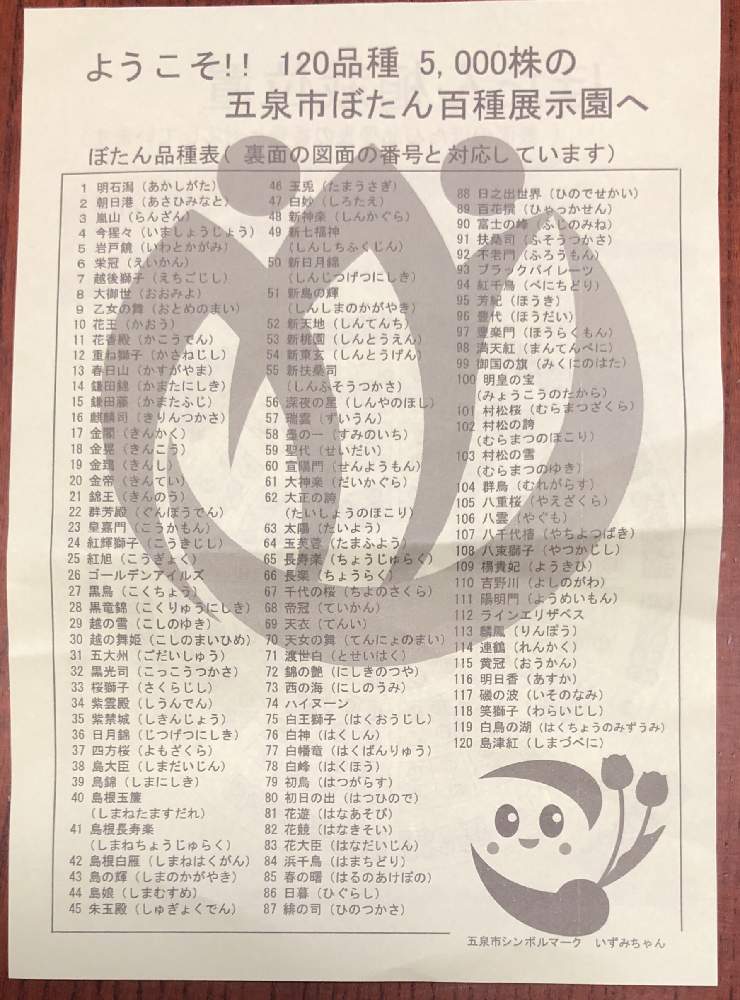 ようこそ!! 120品種 5,000株の
五泉市ぼたん百種展示園へ
ぼたん品種表( 裏面の図面の番号と対応しています)
1 明石潟（あかしがた）
2 朝日港（あさひみなと）
3 嵐山（らんざん）
4 今猩々（いましょうじょう）
5 岩戸鏡（いわとかがみ）
6 栄冠（えいかん）
7 越後獅子（えちごじし）
8 大御世（おおみよ）
9 乙女の舞（おとめのまい）
10 花王（かおう）
11 花香殿（かこうでん）
12 重ね獅子（かさねじし）
13 春日山（かすがやま）
14 鎌田錦（かまたにしき）
15 鎌田藤（かまたふじ）
16 麒麟司（きりんつかさ）
17 金閣（きんかく）
18 金晃（きんこう）
19 金鵄（きんし）
20 金帝（きんてい）
21 錦王（きんのう）
22 群芳殿（ぐんぽうでん）
23 皇嘉門（こうかもん）
24 紅輝獅子（こうきじし）
25 紅旭（こうぎょく）
26 ゴールデンアイルズ
27 黒鳥（こくちょう）
28 黒竜錦（こくりゅうにしき）
29 越の雪（こしのゆき）
30 越の舞姫（こしのまいひめ）
31 五大州（ごだいしゅう）
32 黒光司（こっこうつかさ）
33 桜獅子（さくらじし）
34 紫雲殿（しうんでん）
35 紫禁城（しきんじょう）
36 日月錦（じつげつにしき）
37 四方桜（よもざくら）
38 島大臣（しまだいじん）
39 島錦（しまにしき）
40 島根玉簾
（しまねたますだれ）
41 島根長寿楽
（しまねちょうじゅらく）
42 島根白雁（しまねはくがん）
43 島の輝（しまのかがやき）
44 島娘（しまむすめ）
45 朱玉殿（しゅぎょくでん）
46 玉兎（たまうさぎ）
47 白妙（しろたえ）
48 新神楽（しんかぐら）
49 新七福神
（しんしちふくじん）
50 新日月錦
（しんじつげつにしき）
51 新島の輝
（しんしまのかがやき）
52 新天地（しんてんち）
53 新桃園（しんとうえん）
54 新東玄（しんとうげん）
55 新扶桑司
（しんふそうつかさ）
56 深夜の星（しんやのほし）
57 瑞雲（ずいうん）
58 墨の一（すみのいち）
59 聖代（せいだい）
60 宣陽門（せんようもん）
61 大神楽（だいかぐら）
62 大正の誇
（たいしょうのほこり）
63 太陽（たいよう）
64 玉芙蓉（たまふよう）
65 長寿楽（ちょうじゅらく）
66 長楽（ちょうらく）
67 千代の桜（ちよのさくら）
68 帝冠（ていかん）
69 天衣（てんい）
70 天女の舞（てんにょのまい）
71 渡世白（とせいはく）
72 錦の艶（にしきのつや）
73 西の海（にしのうみ）
74 ハイヌーン
75 白王獅子（はくおうじし）
76 白神（はくしん）
77 白幡竜（はくばんりゅう）
78 白峰（はくほう）
79 初烏（はつがらす）
80 初日の出（はつひので）
81 花遊（はなあそび）
82 花競（はなきそい）
83 花大臣（はなだいじん）
84 浜千鳥（はまちどり）
85 春の曙（はるのあけぼの）
86 日暮（ひぐらし）
87 緋の司（ひのつかさ）
88 日之出世界（ひのでせかい）
89 百花撰（ひゃっかせん）
90 富士の峰（ふじのみね）
91 扶桑司（ふそうつかさ）
92 不老門（ふろうもん）
93 ブラックパイレーツ
94 紅千鳥（べにちどり）
95 芳紀（ほうき）
96 豊代（ほうだい）
97 豊楽門（ほうらくもん）
98 満天紅（まんてんべに）
99 御国の旗（みくにのはた）
100 明皇の宝
（みょうこうのたから）
101 村松桜（むらまつざくら）
102 村松の誇
（むらまつのほこり）
103 村松の雪
（むらまつのゆき）
104 群烏（むれがらす）
105 八重桜（やえざくら）
106 八雲（やぐも）
107 八千代椿（やちよつばき）
108 八束獅子（やつかじし）
109 楊貴妃（ようきひ）
110 吉野川（よしのがわ）
111 陽明門（ようめいもん）
112 ラインエリザベス
113 麟鳳（りんぽう）
114 連鶴（れんかく）
115 黄冠（おうかん）
116 明日香（あすか）
117 磯の波（いそのなみ）
118 笑獅子（わらいじし）
119 白鳥の湖（はくちょうのみずうみ）
120 島津紅（しまづべに）
五泉市シンボルマーク いずみちゃん